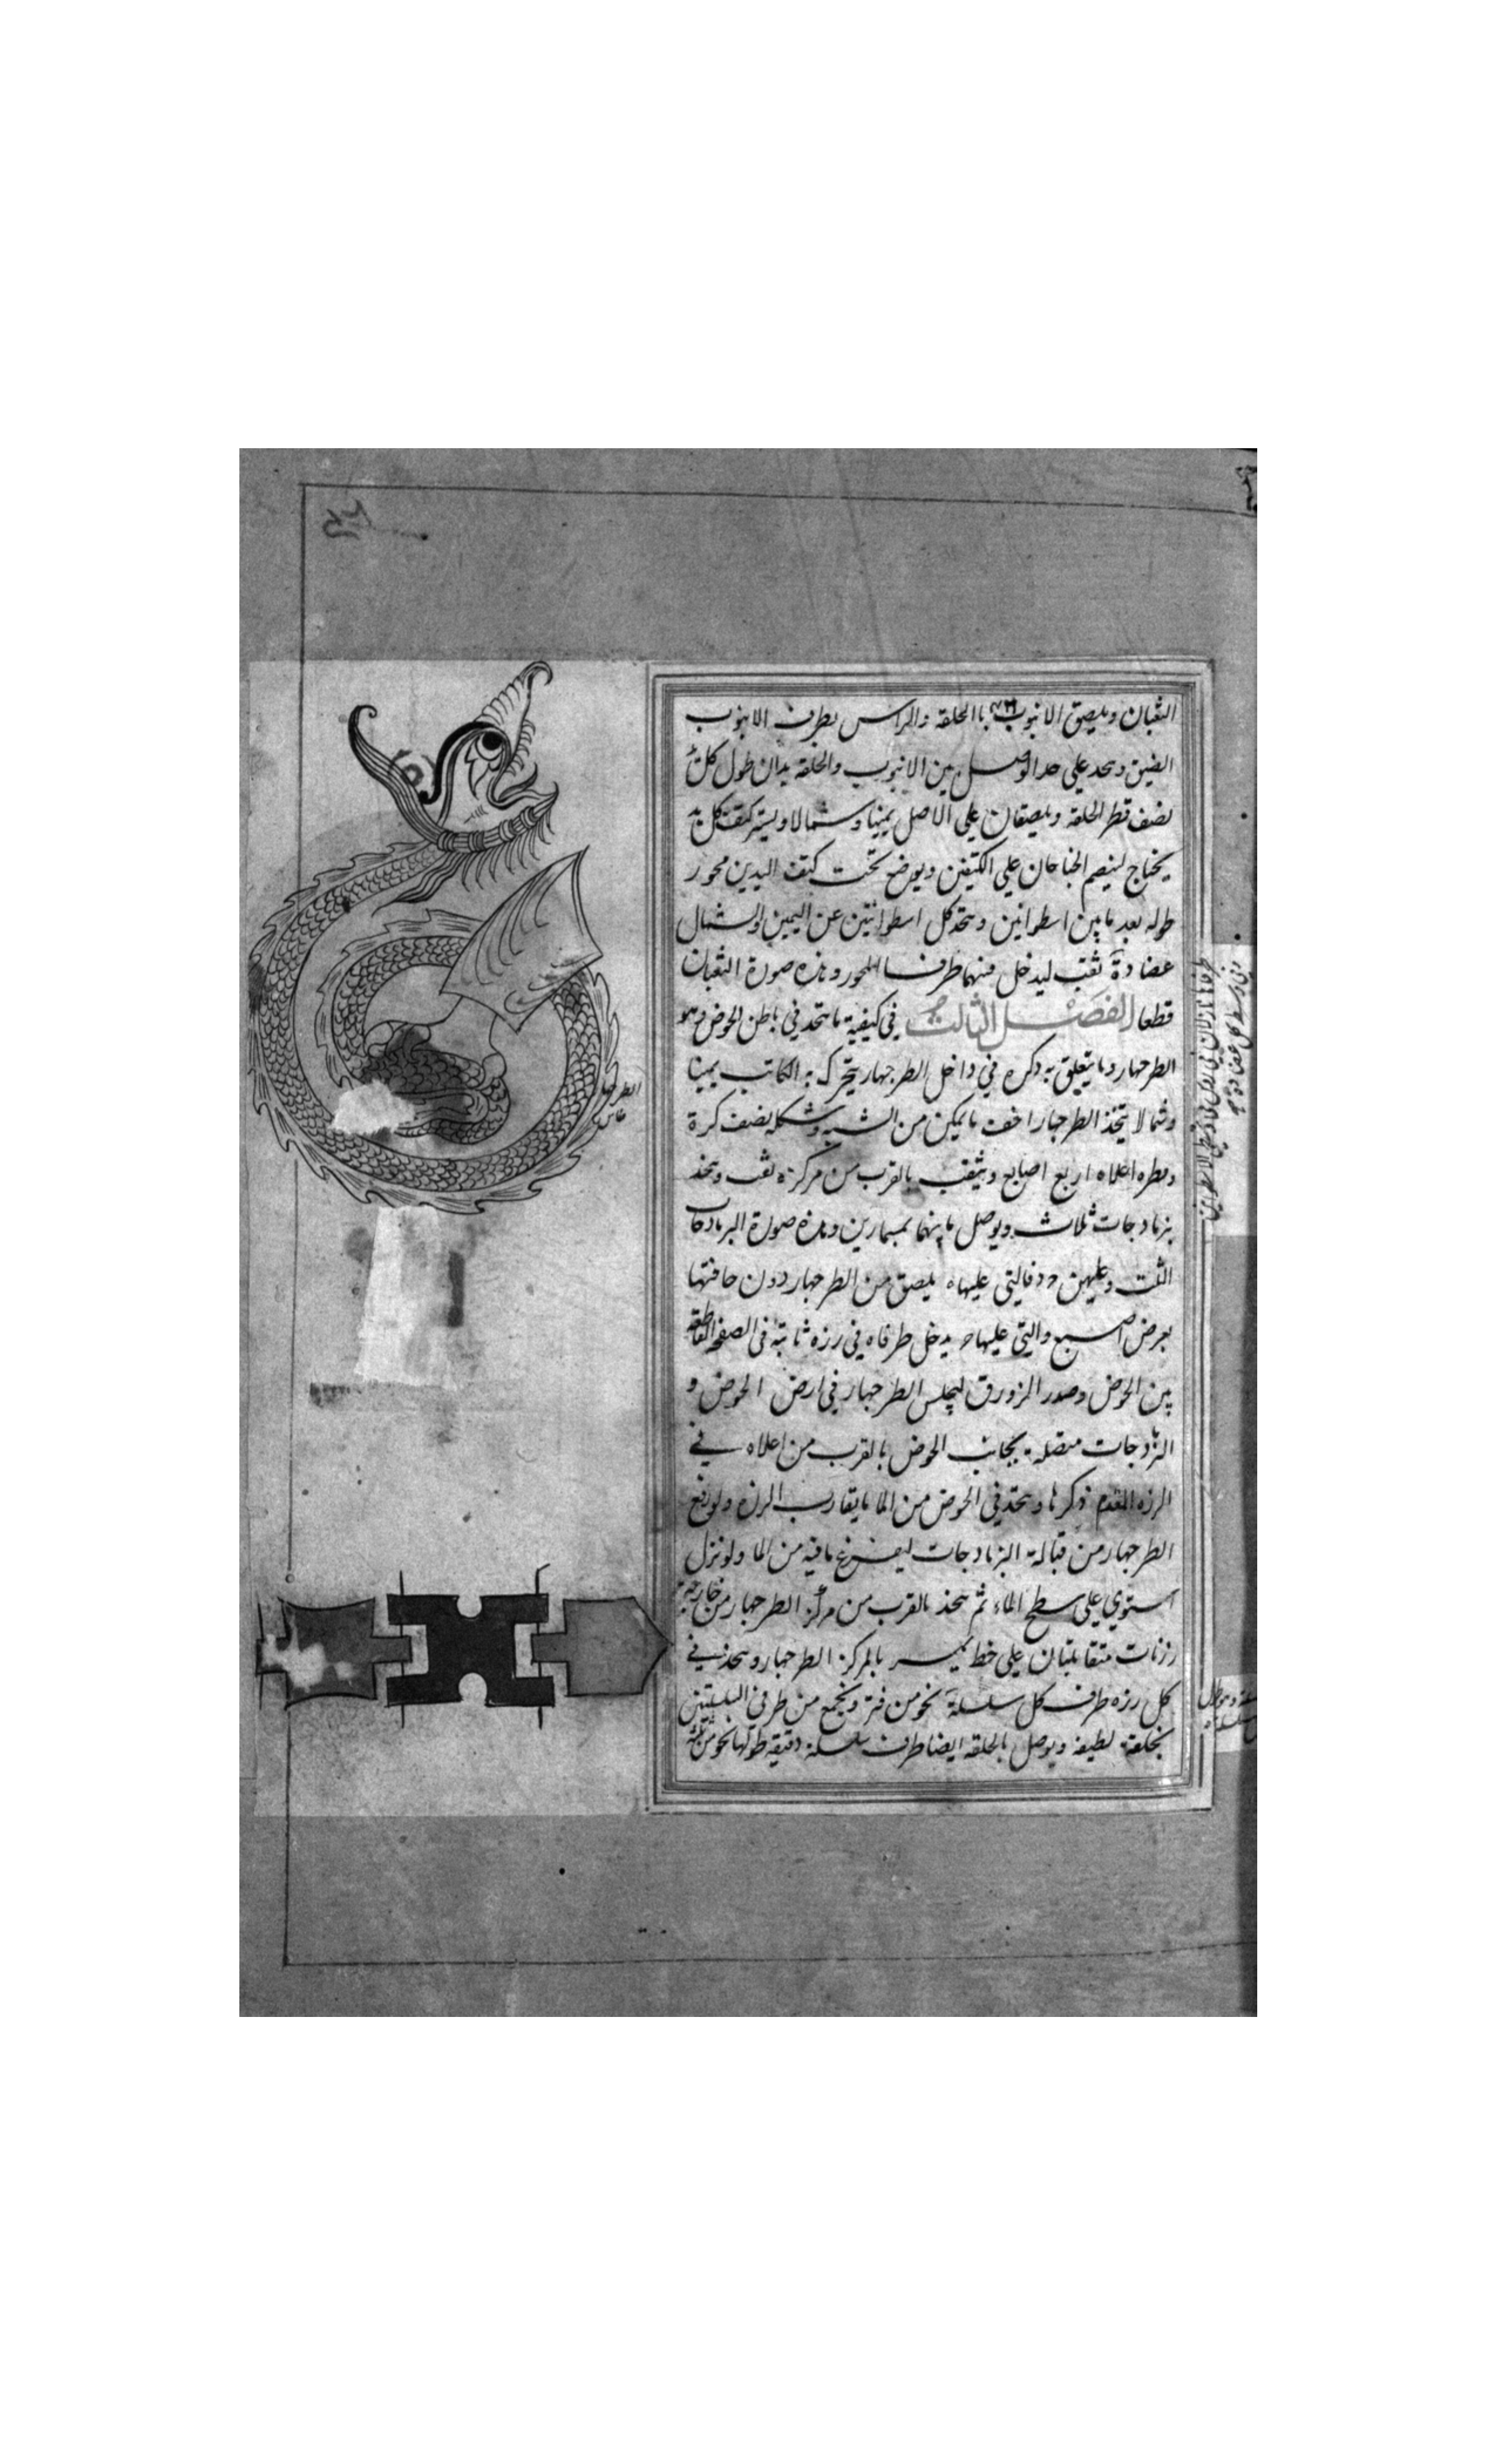 الثعبان ويلصق الانبوب باالحلقة والراس بطرف الانبوب
الضيق ويتخذ علي حد الوصل بين الانبوب والحلقة يدان طول كل
نصف قطر الحلقة ويلصقان علي الاصل يمينا وشمالا ويستر كتف كل يد
يحتاج لينضم الجناحان علي الكتفين ويوضع تحت كتف اليدين محور
طوله بعد ما بين اسطوانين ويتخذ كل اسطوانتين عن اليمين والشمال
عضادة ثقب ليدخل فيهما طرفا المحور وهذه صورة الثعبان
قطعا الفصل الثالث في كيفية ما يتخذ في باطن الحوض وهو
الطرجهار وما يتعلق به ذكره في داخل الطرجهار يتحرك به الكاتب يمينا
وشمالا يتخذ الطرجهارا خف ما يمكن من الشبه وشكله نصف كرة
وقطره اعلاه اربع اصابع ويثقب بالقرب من مركزه ثقب ويتخذ
بزمادجات ثلاث ويوصل ما بينهما بمسمارين وهذه صورة البزمادجات
الثلث وعليهن فالتي عليها ه يلصق من الطرجهار دون حافتها
بعرض اصبع والتي عليها يدخل طرفاه في رزه ثابتة في الصفحة القاطعة
بين الحوض وصدر الزورق ليجلس الطرجهار في ارض الحوض و
متصلة بجانب الحوض بالقرب من اعلاه في
الرزه المقدم ذكرها ويتخذ في الحوض من الما ما يقارب الرزه ولو رفع
الطرجهار من قبالة البزمادجات ليفرغ ما فيه من الما ولو نزل
استوي علي سطح الماء ثم يتخذ بالقرب من مركز الطرجهار من خارجه
رزنات متقابلتان علي خط يمر بالمركز الطرجهار ويتخذ في
كل رزه طرف كل سلسلة نحو من فتر ويجمع من طرفي السلسلتين
بحلقة لطيفة ويوصل بالحلقة ايضا طرف سلسلة دقيقة طولها نحو من ثلثة